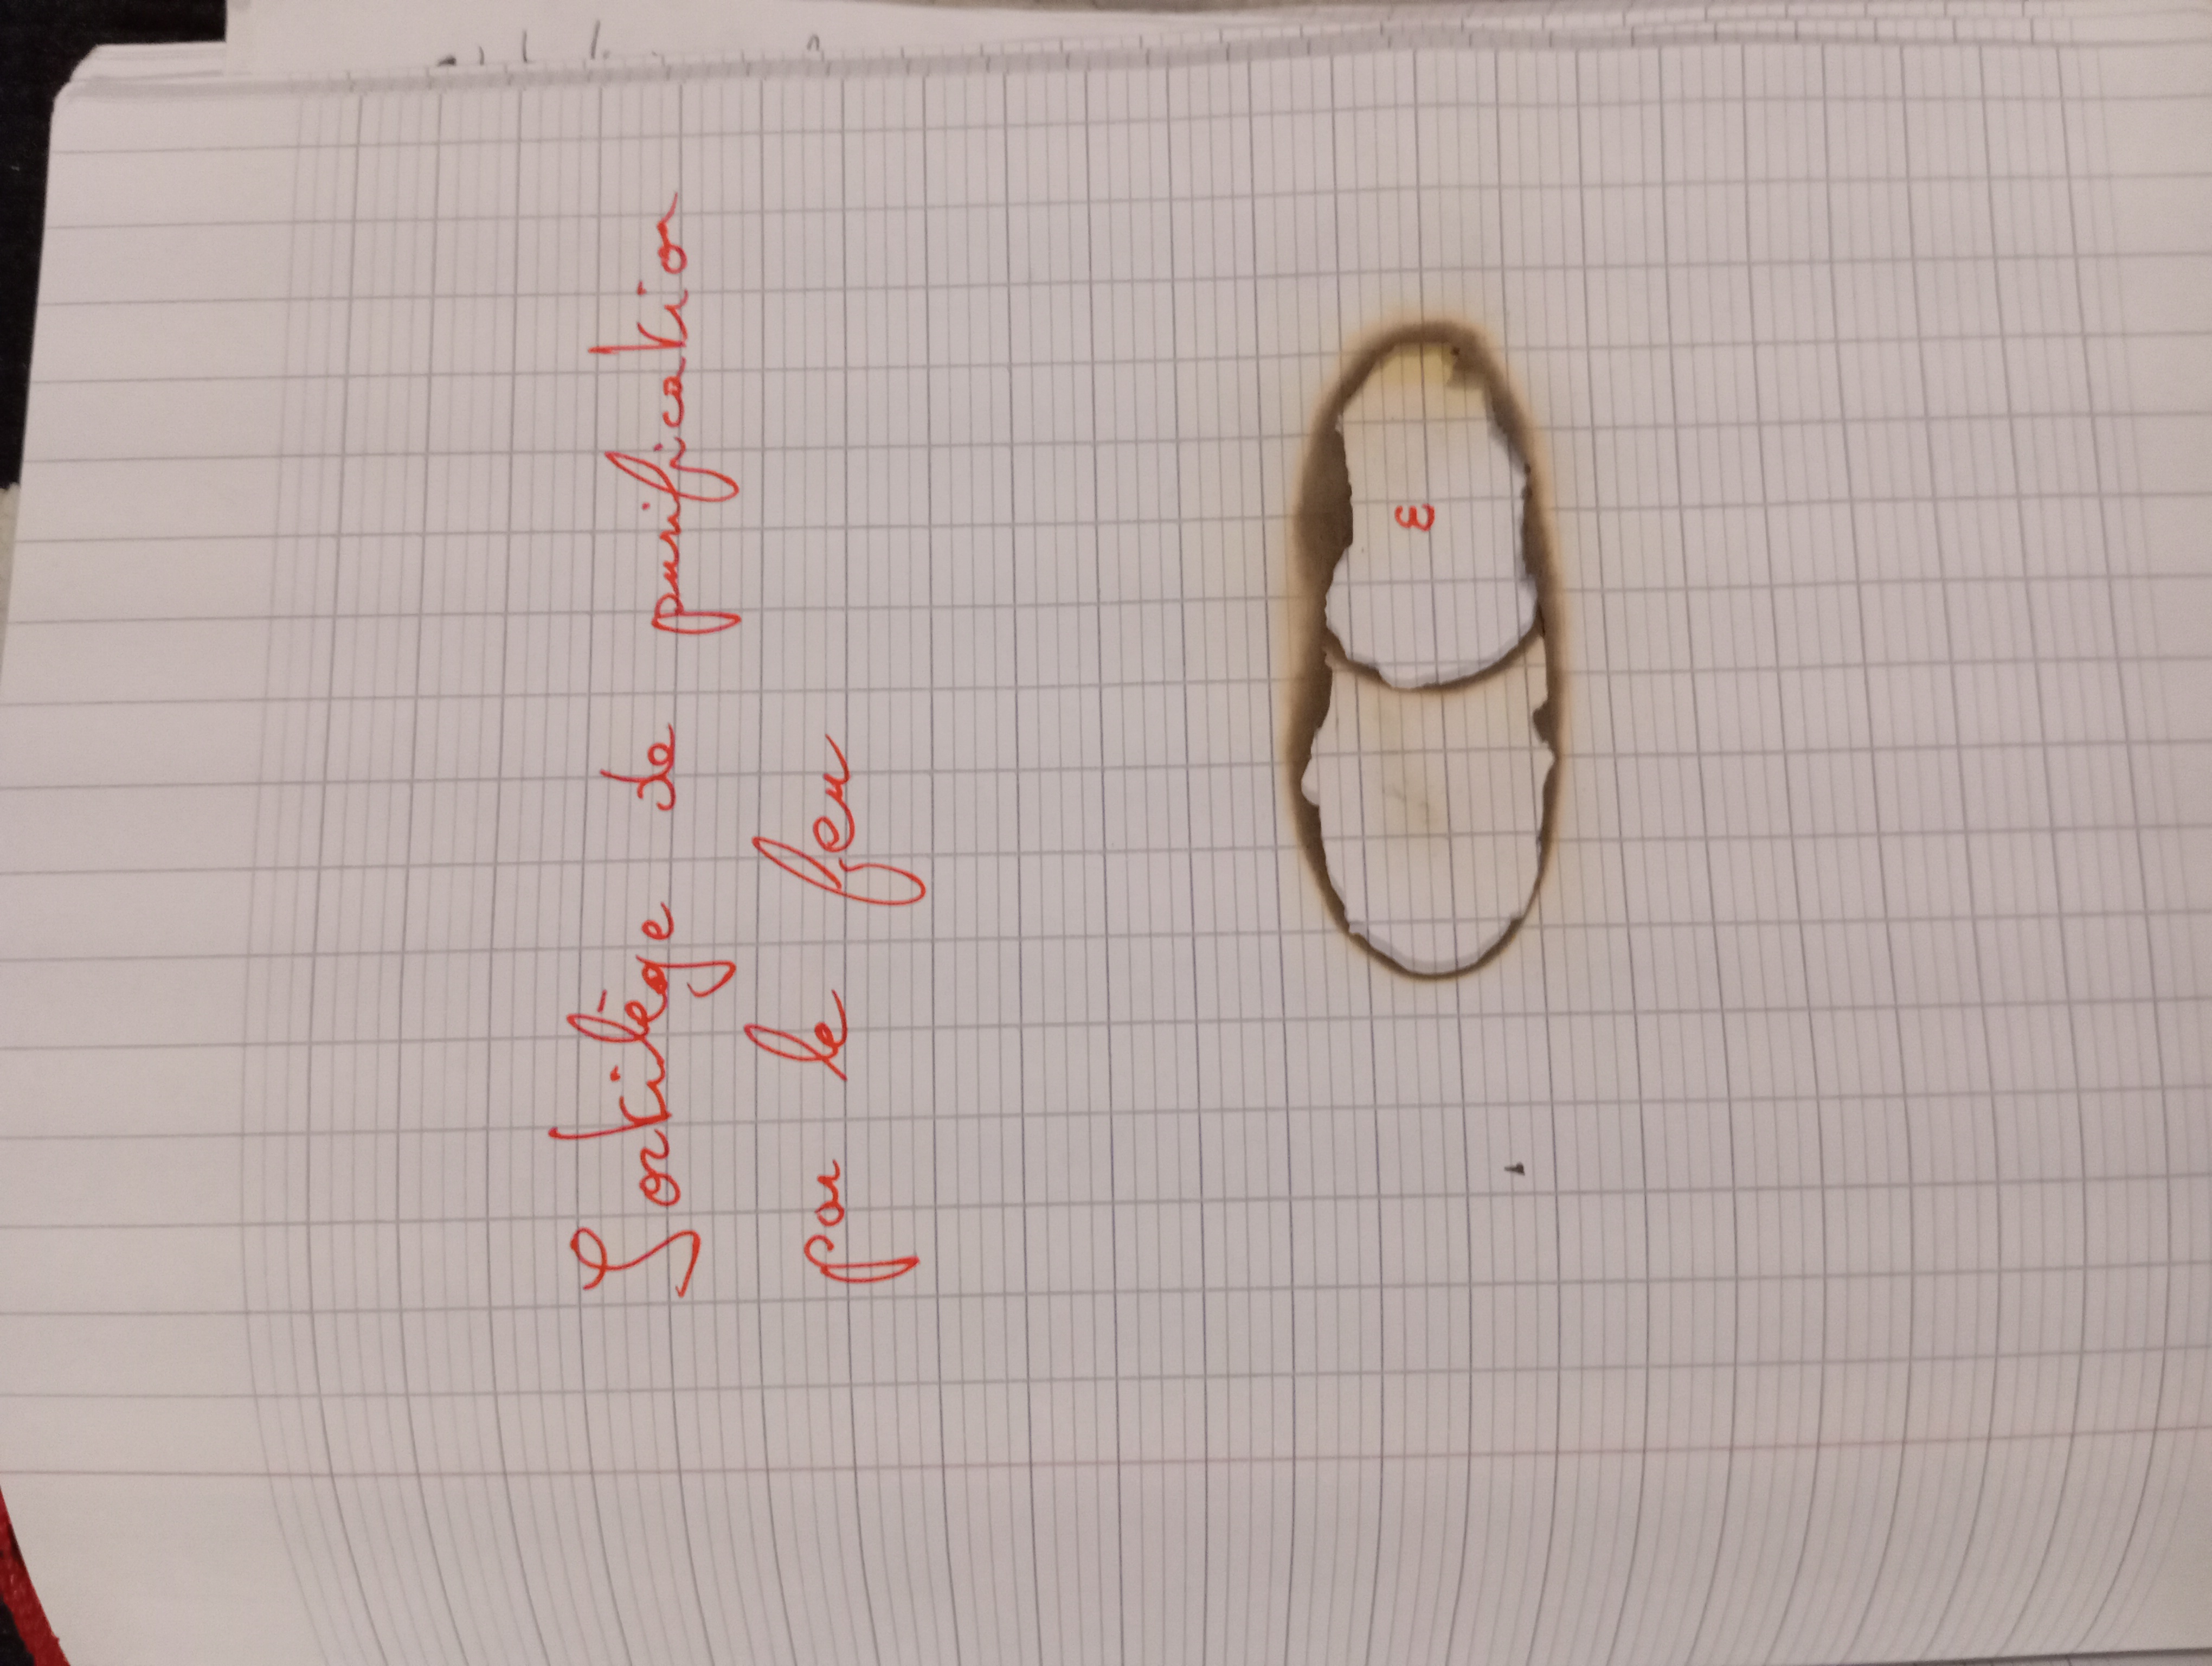 Sortilège de purification
par le feu
ε